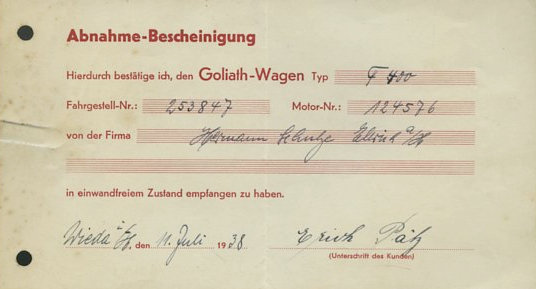 Abnahme-Bescheinigung
Hierdurch bestätige ich, den Goliath-Wagen Typ F 400
Fahrgestell-Nr.: 253847 Motor-Nr.: 124576
von der Firma Hermann Schulze Ellrich a/H
in einwandfreiem Zustand empfangen zu haben.
Wieda i/H. den 11. Juli 1938. Erich Pätz
(Unterschrift des Kunden)